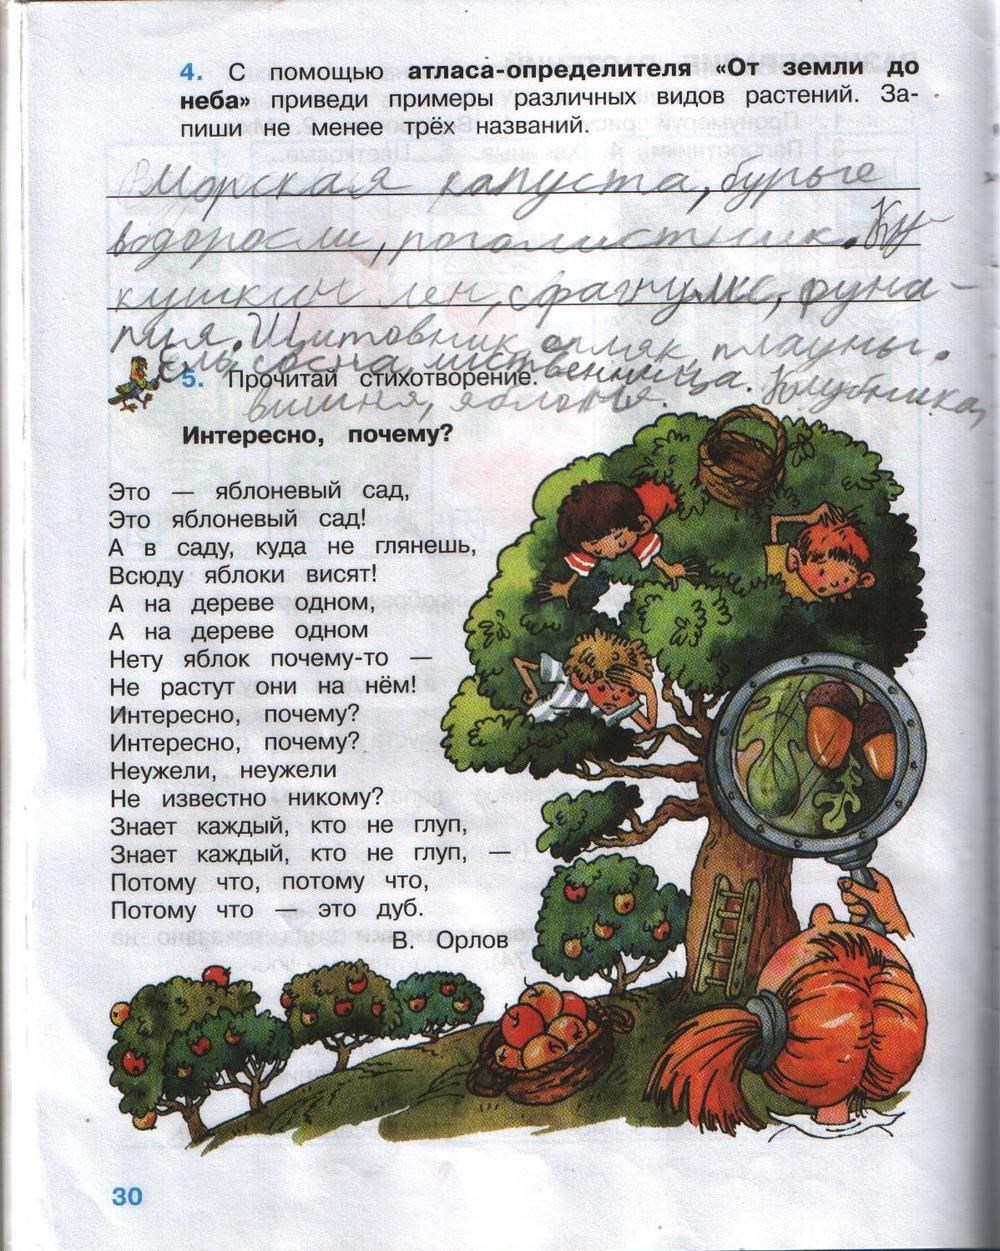 4. С помощью атласа-определителя «От земли до
неба» приведи примеры различных видов растений. За-
пиши не менее трёх названий.
Морская капуста, бурые
водоросли, роголистник. Ку-
кушкин лен, сфагнум, фуна-
рия. Щитовник, орляк, плауны.
Ель, сосна, лиственница. Клубника,
вишня, яблоня.
5. Прочитай стихотворение.
Интересно, почему?
Это — яблоневый сад,
Это яблоневый сад!
А в саду, куда не глянешь,
Всюду яблоки висят!
А на дереве одном,
А на дереве одном
Нету яблок почему-то —
Не растут они на нём!
Интересно, почему?
Интересно, почему?
Неужели, неужели
Не известно никому?
Знает каждый, кто не глуп,
Знает каждый, кто не глуп, —
Потому что, потому что,
Потому что — это дуб.
В. Орлов
30